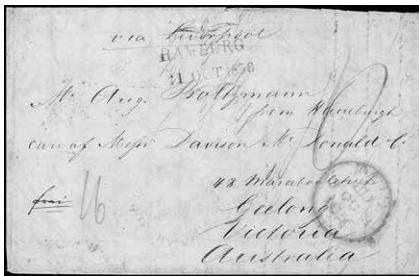 via Liverpool
HAMBURG
1 OCT 1856
Mr. Aug. Baltzmann
from Hamburgh
care of Messrs Davison Mc Donald Co
48 Marabool Street
Geelong
frei
16
Victoria
Australia